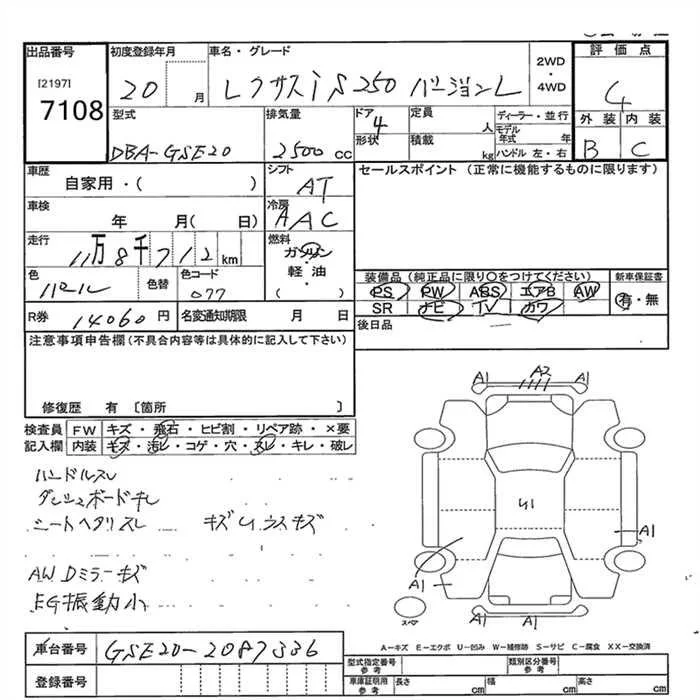 出品番号 初度登録年月 車名・グレード 2WD・4WD 評価点
[2197] 7108 20 月 レクサスiS250 バージョンL 4
型式 排気量 ドア 4 定員 人 ディーラー・並行 外装 内装
形状 積載 kg モデル年式 年 ハンドル 左・右
DBA-GSE20 2500 cc B C
車歴 シフト セールスポイント (正常に機能するものに限ります)
自家用・( ) AT
車検 冷房
年 月( 日) AAC
走行 燃料
11万8千712km ガソリン・軽油( )
色 色替 色コード 装備品 (純正品に限り○をつけてください) 新車保証書
パール 077 PS PW ABS エアB AW 有・無
SR ナビ TV カワ
R券 14060円 名変通知期限 月 日 後日品
注意事項申告欄 (不具合内容等は具体的に記入して下さい)
修復歴 有 〔箇所 〕
検査員 FW キズ・飛石・ヒビ割・リペア跡・×要
記入欄 内装 キズ・汚レ・コゲ・穴・スレ・キレ・破レ
ハンドルスレ
ダッシュボードキレ
シートヘタリスレ キズ Uウスキズ
AW Dミラーキズ
EG振動小
A1 A2 A1
U1
A1
A1
A1 A1
スペア
A−キズ E−エクボ U−凹み W−補修跡 S−サビ C−腐食 XX−交換済
車台番号 GSE20-2087336
登録番号
型式指定番号 参考 類別区分番号 参考
車庫証明用 参考 長さ cm 幅 cm 高さ cm